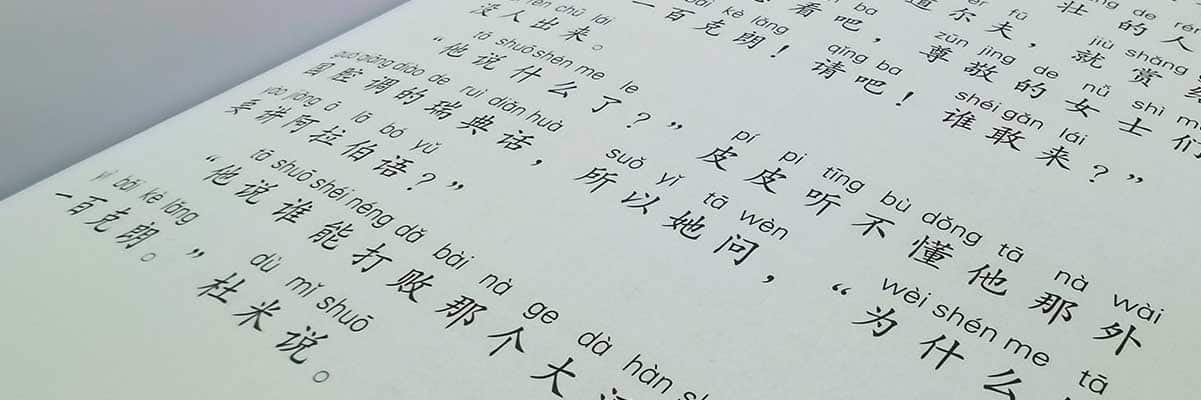 de rén
壮的人
ěr fū jiù shǎng
道尔夫，就赏
ba zūn jìng de nǚ shì
看吧，尊敬的女士们
bǎi kè lǎng qǐng ba shéi gǎn lái
一百克朗！请吧！谁敢来？”
rén chū lái
没人出来。
tā shuō shén me le pí pi tīng bù dǒng tā nà wài
“他说什么了？”皮皮听不懂他那外
guó qiāng diào de ruì diǎn huà suǒ yǐ tā wèn wèi shén me tā
国腔调的瑞典话，所以她问，“为什么
yào jiǎng ā lā bó yǔ
要讲阿拉伯语？”
tā shuō shéi néng dǎ bài nà ge dà hàn
“他说谁能打败那个大
yì bǎi kè lǎng dù mǐ shuō
一百克朗。”杜米说。